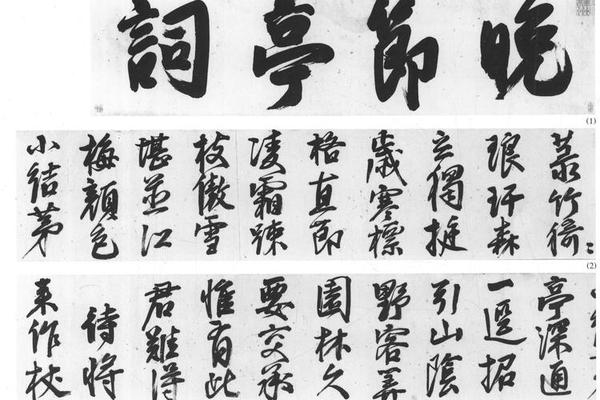 晚節亭詞
(1)
菉竹猗〻
琅玕森
立獨挺
歲寒標
格直節
凌霜竦
枝傲雪
堪並江
梅顏色
小結茅
(2)
亭深通
一逕招
引山陰
野客算
園林久
要交承
惟有此
君難得
待將
來作杖